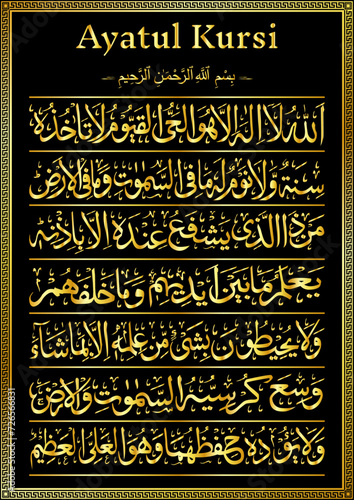 Ayatul Kursi
بِسْمِ ٱللَّهِ ٱلرَّحْمَٰنِ ٱلرَّحِيمِ
اَللّٰهُ لَاۤ اِلٰهَ اِلَّا هُوَ الْحَیُّ الْقَیُّوْمُ لَا تَاْخُذُهٗ
سِنَةٌ وَّلَا نَوْمٌ لَهٗ مَا فِی السَّمٰوٰتِ وَمَا فِی الْاَرْضِ
مَنْ ذَا الَّذِیْ یَشْفَعُ عِنْدَهٗۤ اِلَّا بِاِذْنِهٖ
یَعْلَمُ مَا بَیْنَ اَیْدِیْهِمْ وَمَا خَلْفَهُمْ
وَلَا یُحِیْطُوْنَ بِشَیْءٍ مِّنْ عِلْمِهٖۤ اِلَّا بِمَا شَآءَ
وَسِعَ كُرْسِیُّهُ السَّمٰوٰتِ وَالْاَرْضَ
وَلَا یَـُٔوْدُهٗ حِفْظُهُمَا وَهُوَ الْعَلِیُّ الْعَظِیْمُ
Adobe Stock | #726566831